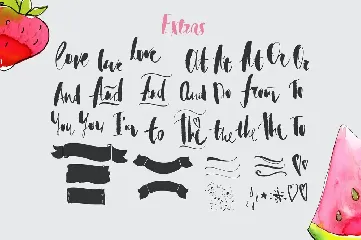 Extras
Love love love At At At Or Or
And And And And Do from To
You You I'm to The the the the To